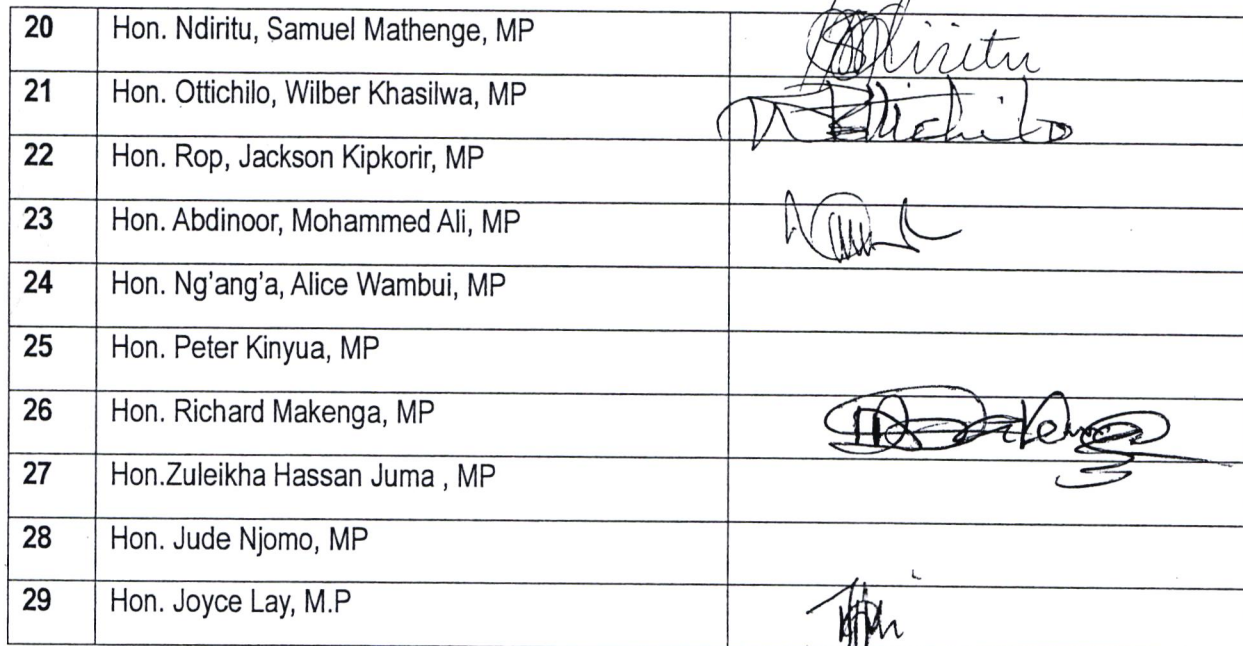 20 Hon. Ndiritu, Samuel Mathenge, MP Ndiritu
21 Hon. Ottichilo, Wilber Khasilwa, MP Ottichilo
22 Hon. Rop, Jackson Kipkorir, MP
23 Hon. Abdinoor, Mohammed Ali, MP
24 Hon. Ng'ang'a, Alice Wambui, MP
25 Hon. Peter Kinyua, MP
26 Hon. Richard Makenga, MP
27 Hon.Zuleikha Hassan Juma , MP
28 Hon. Jude Njomo, MP
29 Hon. Joyce Lay, M.P